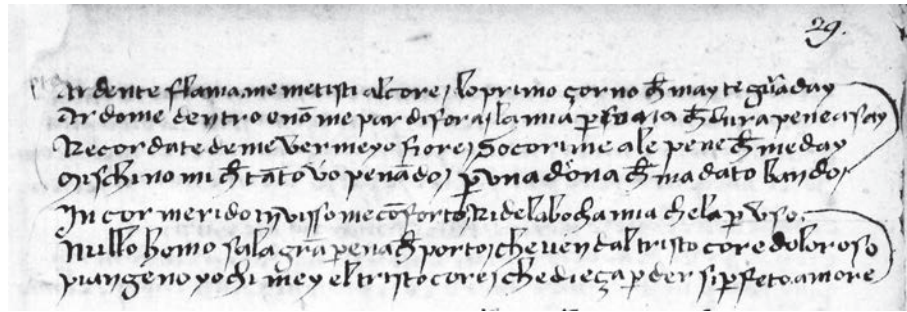 29.
Ardente flama me metisti al core / lo primo zorno ch̄ may te guaday
Ardome dentro e nō me par di fora / la mia ꝑsona ch̄ dura pene asay
Recordate de me vermeyo fiore / Socorime a le pene ch̄ me day
Mischino mi ch̄ tāto vo penādo / ꝑ vna dōna ch̄ ma dato bando /
In cor me rido in visso me cōforto / Ride la bocha mia che la ꝑ vso.
Nullo homo sa la grā pena ch̄ porto / che ven dal tristo core doloroso
piangeno yochi mey el tristo core / che dieza ꝑder si ꝑfeto amore